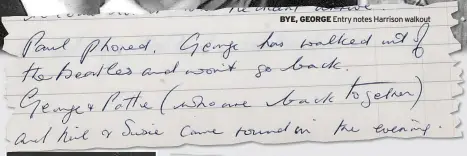 BYE, GEORGE Entry notes Harrison walkout
Paul phoned. George has walked out of
the Beatles and won't go back.
George & Pattie (who are back together)
and Neil & Susie came round in the evening.